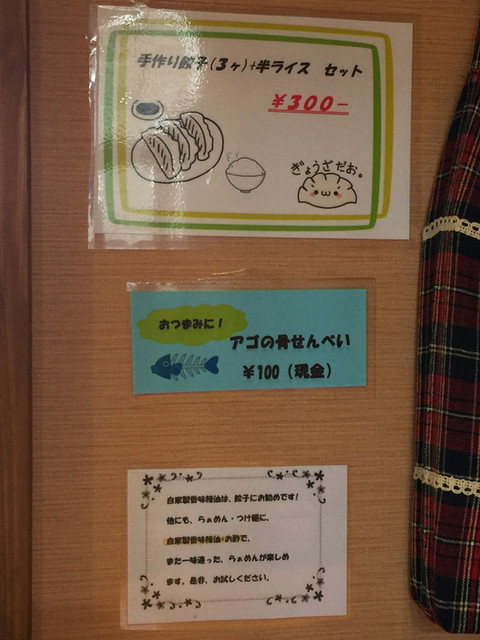 手作り餃子(3ヶ)+半ライス セット
¥300-
ぎょうざだお。
おつまみに!
アゴの骨せんべい
¥100(現金)
自家製香味辣油は、餃子にお勧めです!
他にも、らぁめん・つけ麺に、
自家製香味辣油・お酢で、
また一味違った、らぁめんが楽しめ
ます。是非、お試しください。